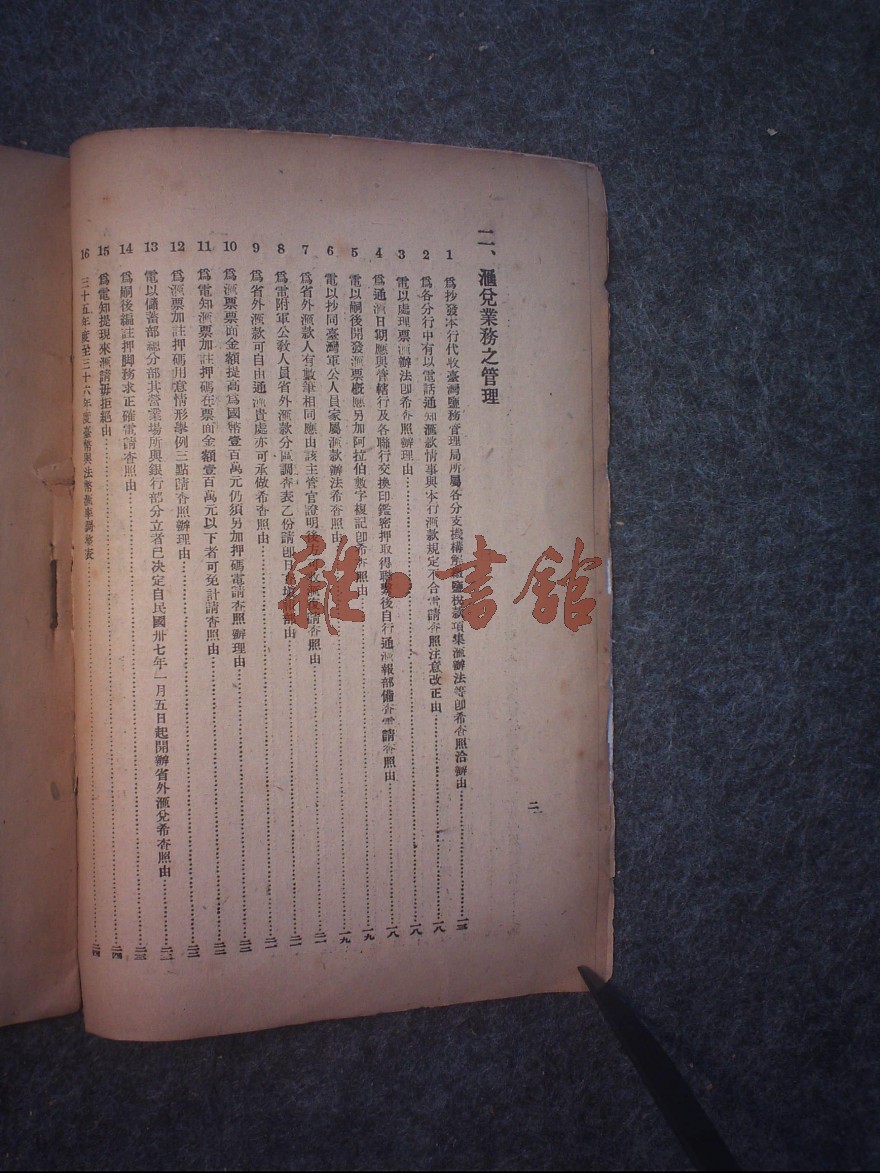 二、滙兌業務之管理
1 爲抄發本行代收臺灣鹽務管理局所屬各分支機構解繳鹽稅款項集滙辦法等卽希查照洽辦由 一三
2 爲各分行中有以電話通知滙款情事與本行滙款規定不合電請查照注意改正由 一八
3 電以處理票滙辦法卽希查照辦理由 一八
4 爲通滙日期應與管轄行及各聯行交換印鑑密押取得聯繫後自行通滙報部備查電請查照由 一八
5 電以嗣後開發滙票槪應另加阿拉伯數字複記卽希查照由 一九
6 電以抄同臺灣軍公人員家屬滙款辦法希查照由 一九
7 爲省外滙款人有數筆相同應由該主管官證明後方可 由 二一
8 爲電附軍公敎人員省外滙款分區調查表乙份請卽日 部由 二一
9 爲省外滙款可自由通滙貴處亦可承做希查照由 二一
10 爲滙票票面金額提高爲國幣壹百萬元仍須另加押碼電請查照辦理由 二二
11 爲電知滙票加註押碼在票面金額壹百萬元以下者可免計請查照由 二二
12 爲滙票加註押碼用意情形舉例三點請查照辦理由
13 電以儲蓄部總分部其營業場所與銀行部分立者已決定自民國卅七年一月五日起開辦省外滙兌希查照由
14 爲嗣後編註押脚務求正確電請查照由 二三
15 爲電知提現來滙請毋拒絕由 二四
16 三十五年度至三十六年度臺幣與法幣滙率調整表 二四
二
雜·書館